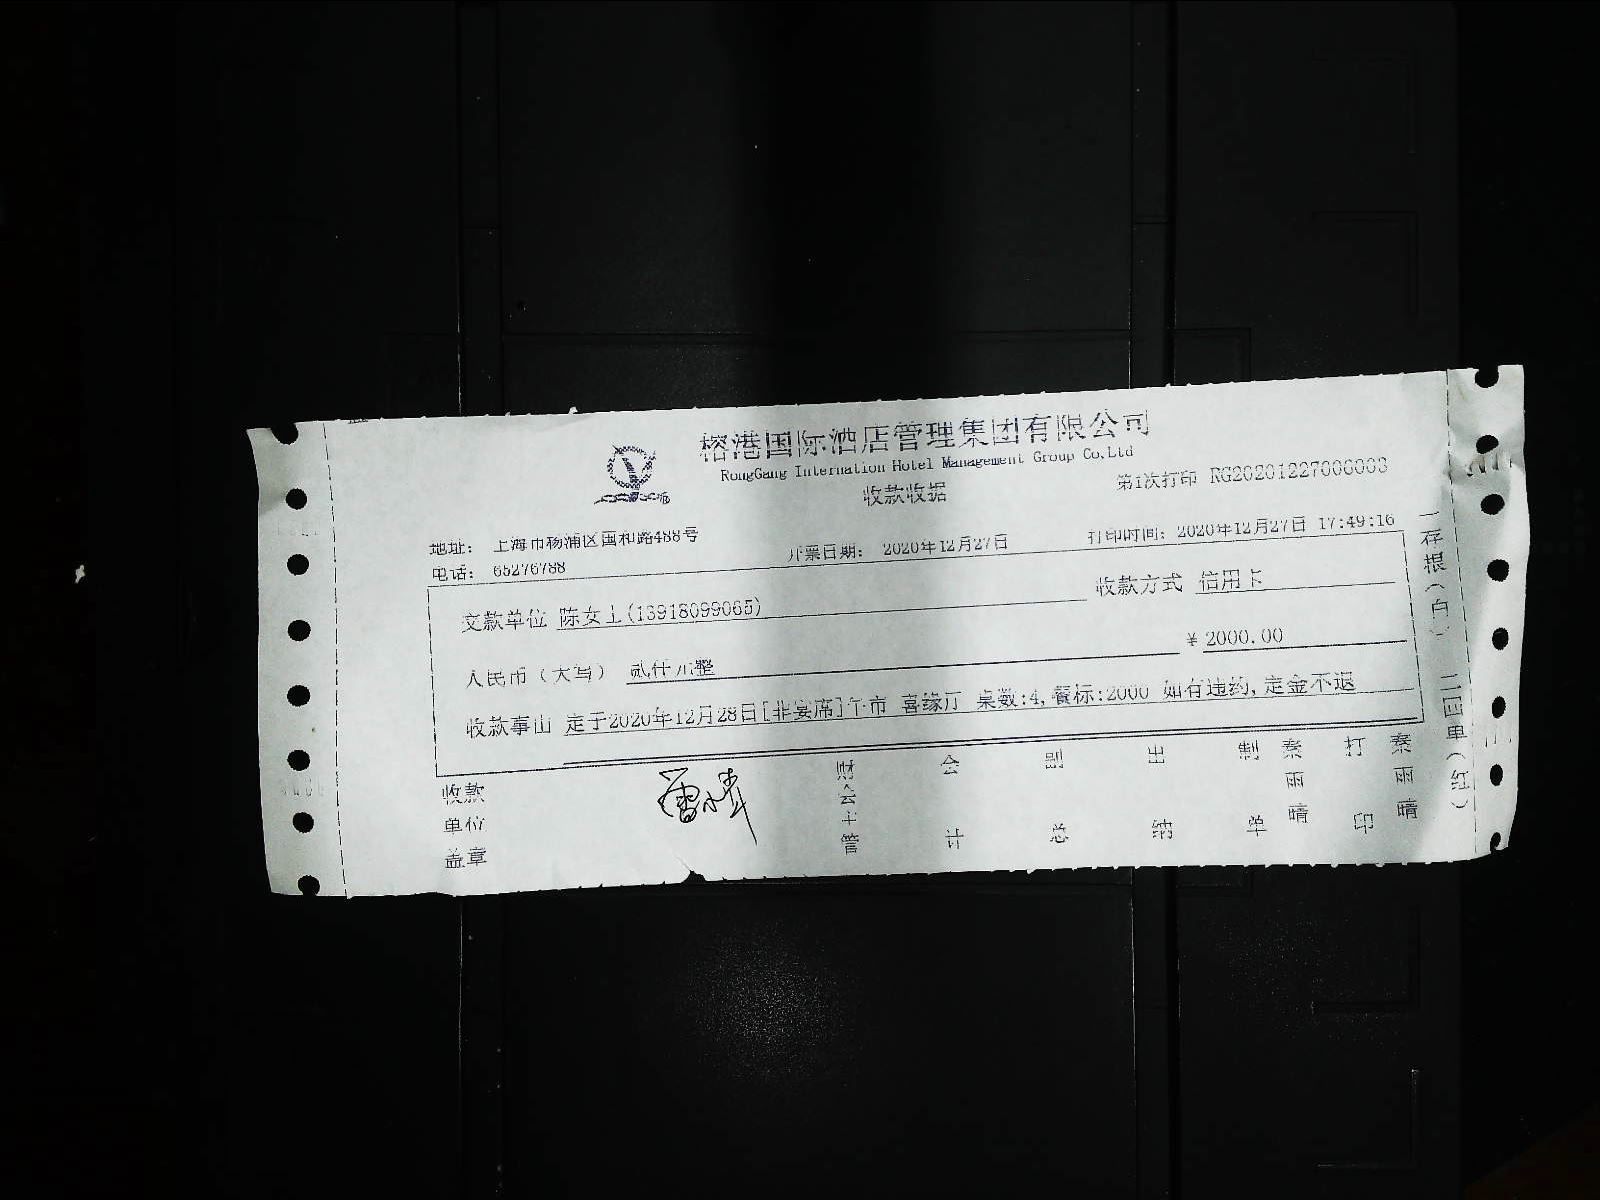 榕港国际酒店管理集团有限公司
RongGang Internation Hotel Management Group Co,Ltd
收款收据
第1次打印 RG20201227006003
地址: 上海市杨浦区国和路488号
电话: 65276788
开票日期: 2020年12月27日
打印时间: 2020年12月27日 17:49:16
交款单位 陈女士(13918099065)
收款方式 信用卡
人民币(大写) 贰仟元整
¥ 2000.00
收款事由 定于2020年12月28日[非宴席]午市 喜缘厅 桌数:4,餐标:2000 如有违约,定金不退
收款单位盖章
财会主管
会计
副总
出纳
制单
秦雨晴
打印
秦雨晴
一存根(白) 二回单(红)